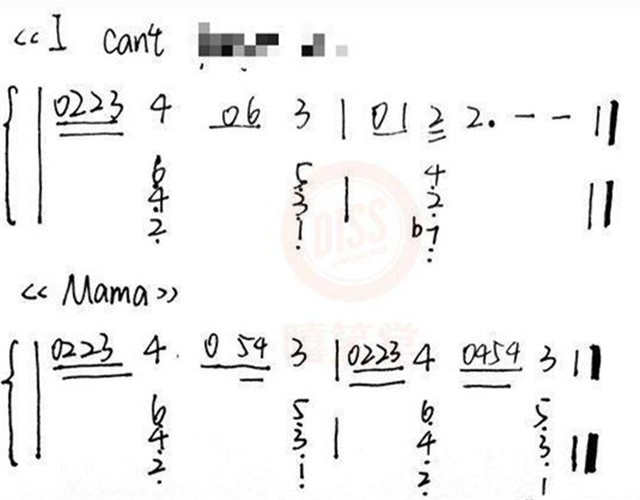 <<I can't
0223 4 06 3 | 01 2 2. - - ||
6 5 4
4 3 | 2 ||
2 1 b7
DISS
<<Mama>>
0223 4. 0 54 3 | 0223 4 0454 3 ||
6 5 6 5
4 3 | 4 3 ||
2 1 2 1